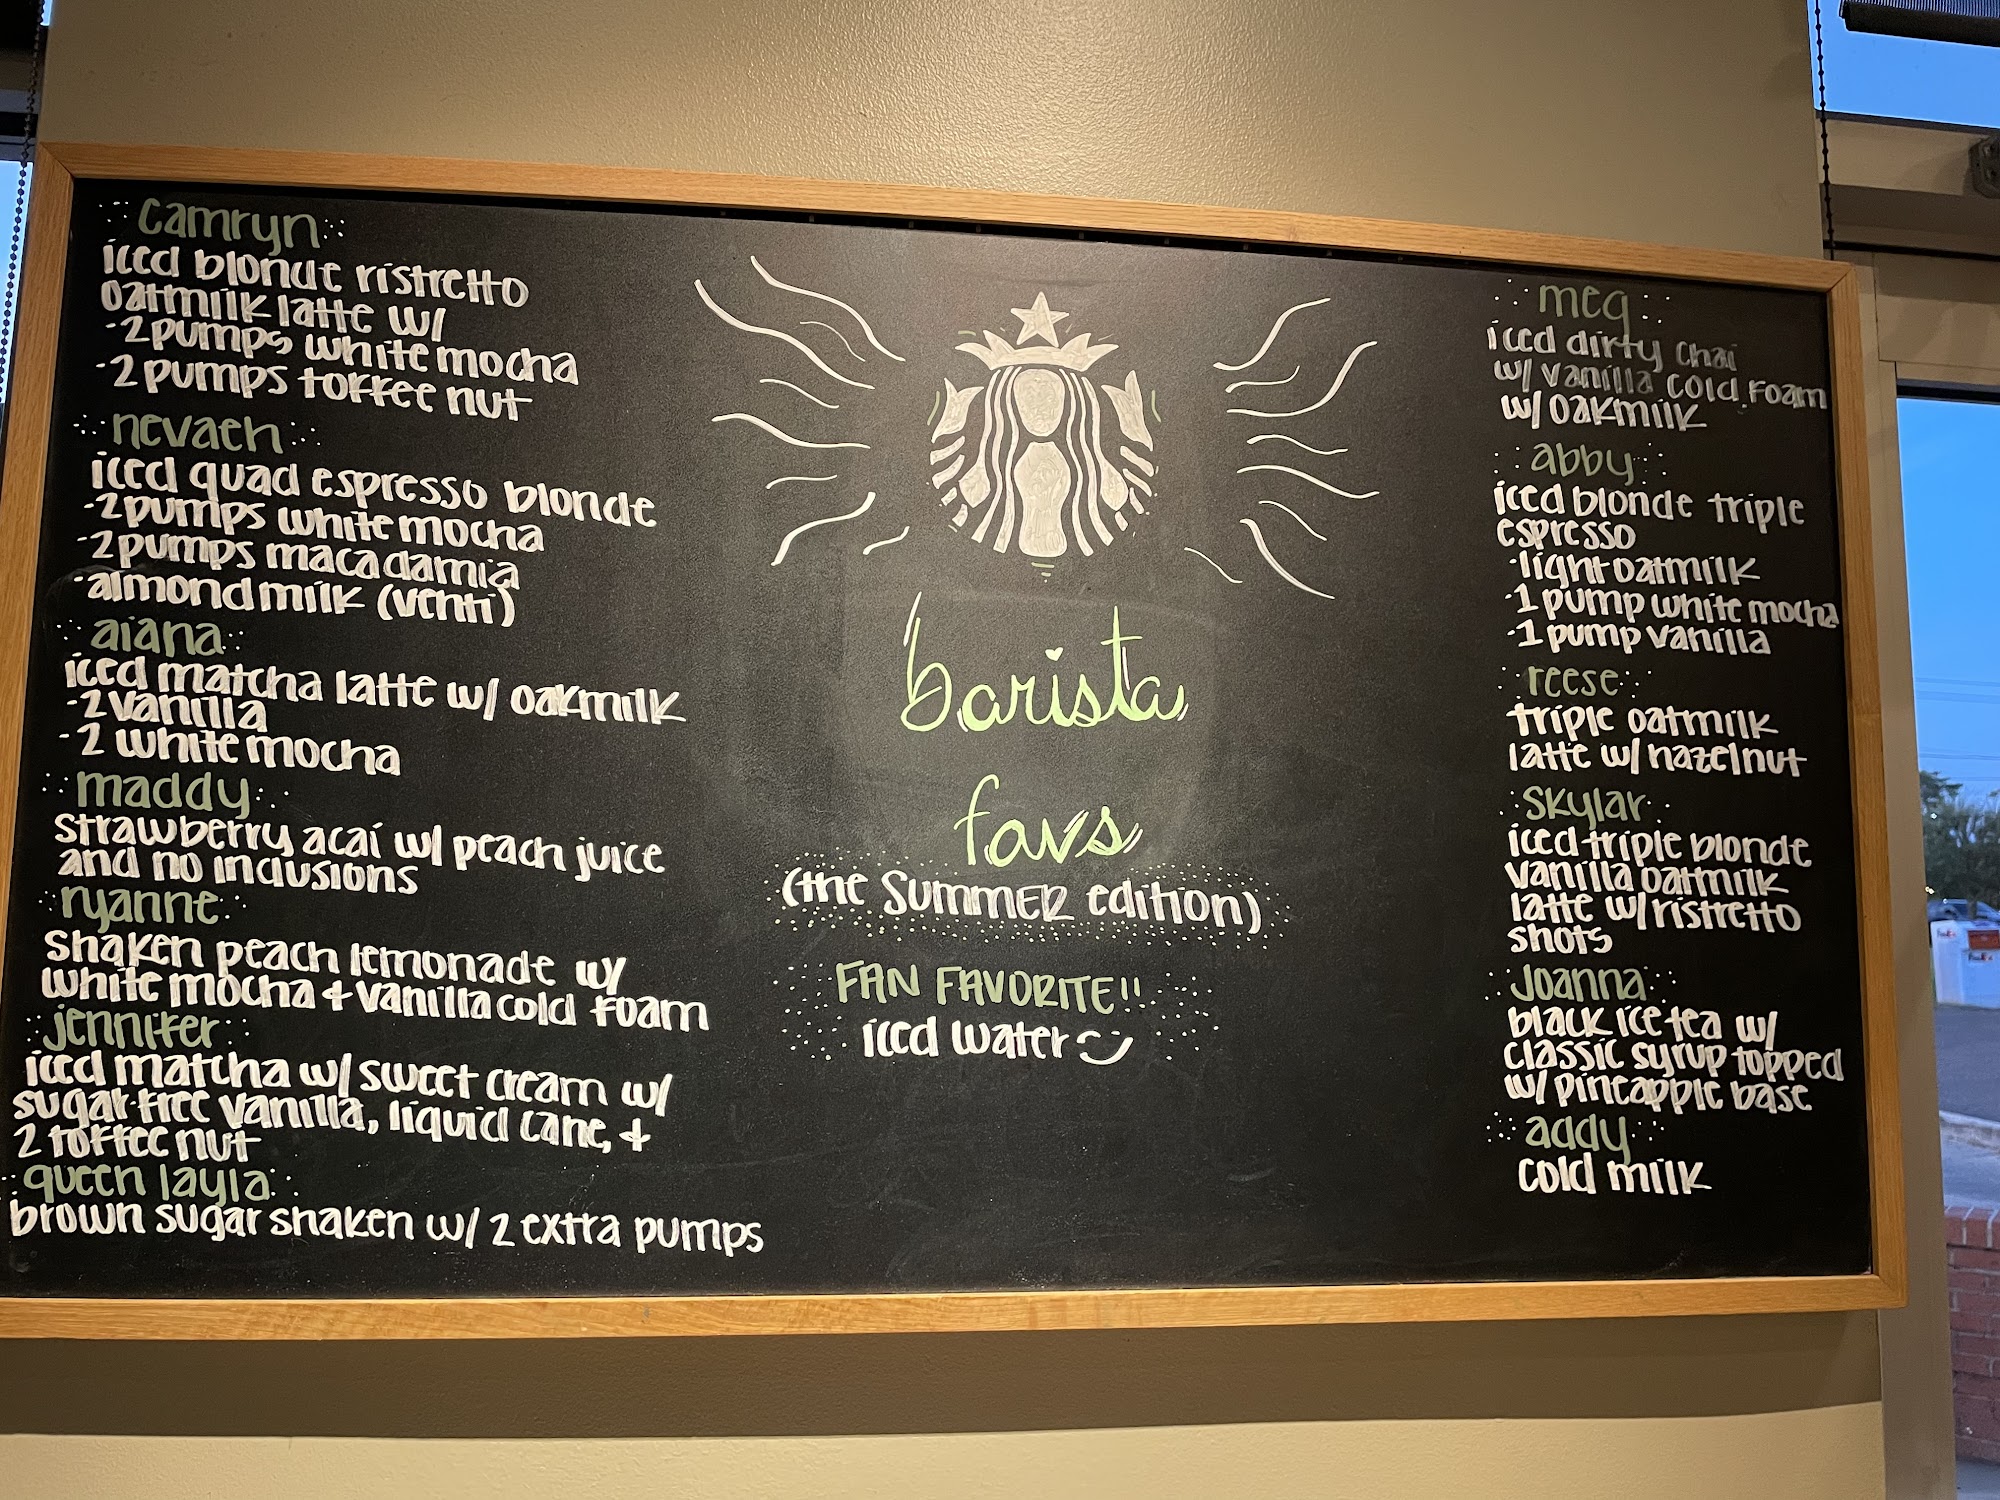 camryn
iced blonde ristretto
oatmilk latte w/
·2 pumps white mocha
·2 pumps toffee nut
nevaeh
iced quad espresso blonde
·2 pumps white mocha
·2 pumps macadamia
·almond milk (venti)
aiana
iced matcha latte w/ oakmilk
·2 vanilla
·2 white mocha
maddy
strawberry acaí w/ peach juice
and no inclusions
ryanne
shaken peach lemonade w/
white mocha + vanilla cold foam
jennifer
iced matcha w/ sweet cream w/
sugar-free vanilla, liquid cane, +
2 toffee nut
queen layla
brown sugar shaken w/ 2 extra pumps
barista
favs
(the SUMMER edition)
FAN FAVORITE!!
iced water
meg
iced dirty chai
w/ vanilla cold foam
w/ oakmilk
abby
iced blonde triple
espresso
·light oatmilk
·1 pump white mocha
·1 pump vanilla
reese
triple oatmilk
latte w/ hazelnut
skylar
iced triple blonde
vanilla oatmilk
latte w/ ristretto
shots
Joanna
black ice tea w/
classic syrup topped
w/ pineapple base
addy
cold milk